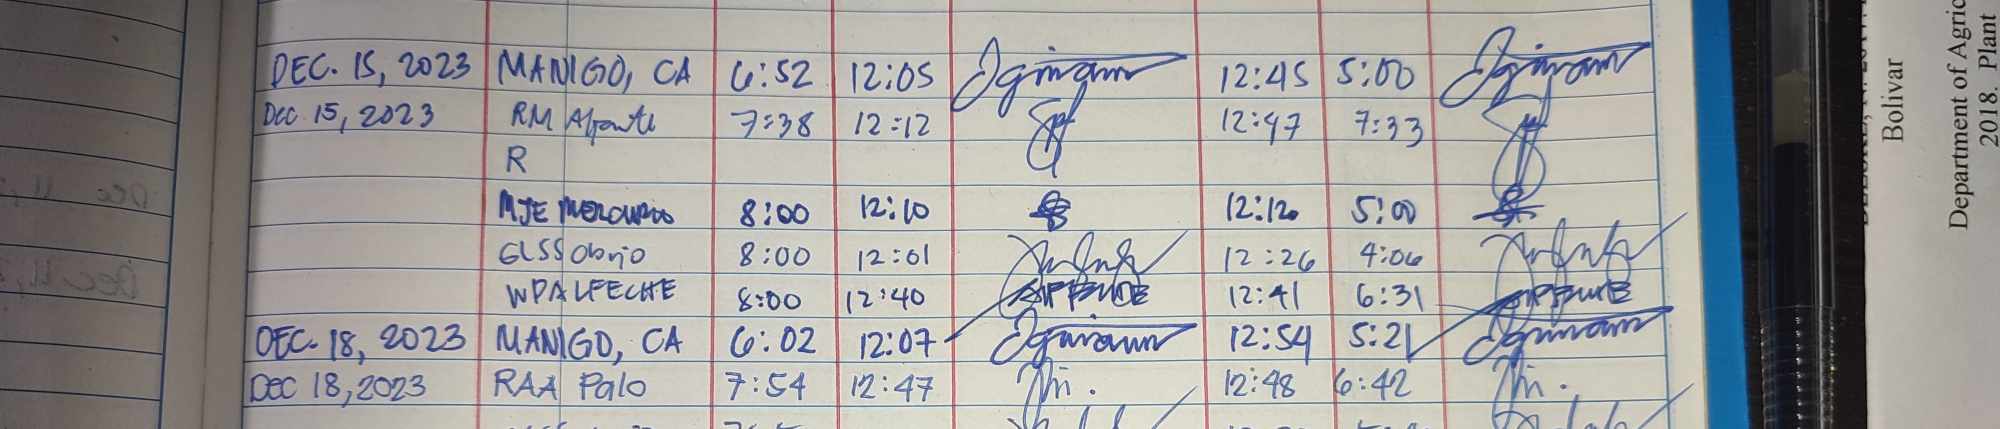 DEC. 15, 2023 MANIGO, CA 6:52 12:05 12:45 5:00
Dec 15, 2023 RM 7:38 12:12 12:47 7:33
R
MJE MERCURIO 8:00 12:10 12:12 5:00
GLSS Obnjo 8:00 12:01 12:26 4:06
WPALFECHE 8:00 12:40 12:41 6:31
DEC. 18, 2023 MANIGO, CA 6:02 12:07 12:54 5:21
Dec 18, 2023 RAA Palo 7:54 12:47 12:48 6:42
Bolivar
Department of Agric
2018. Plant